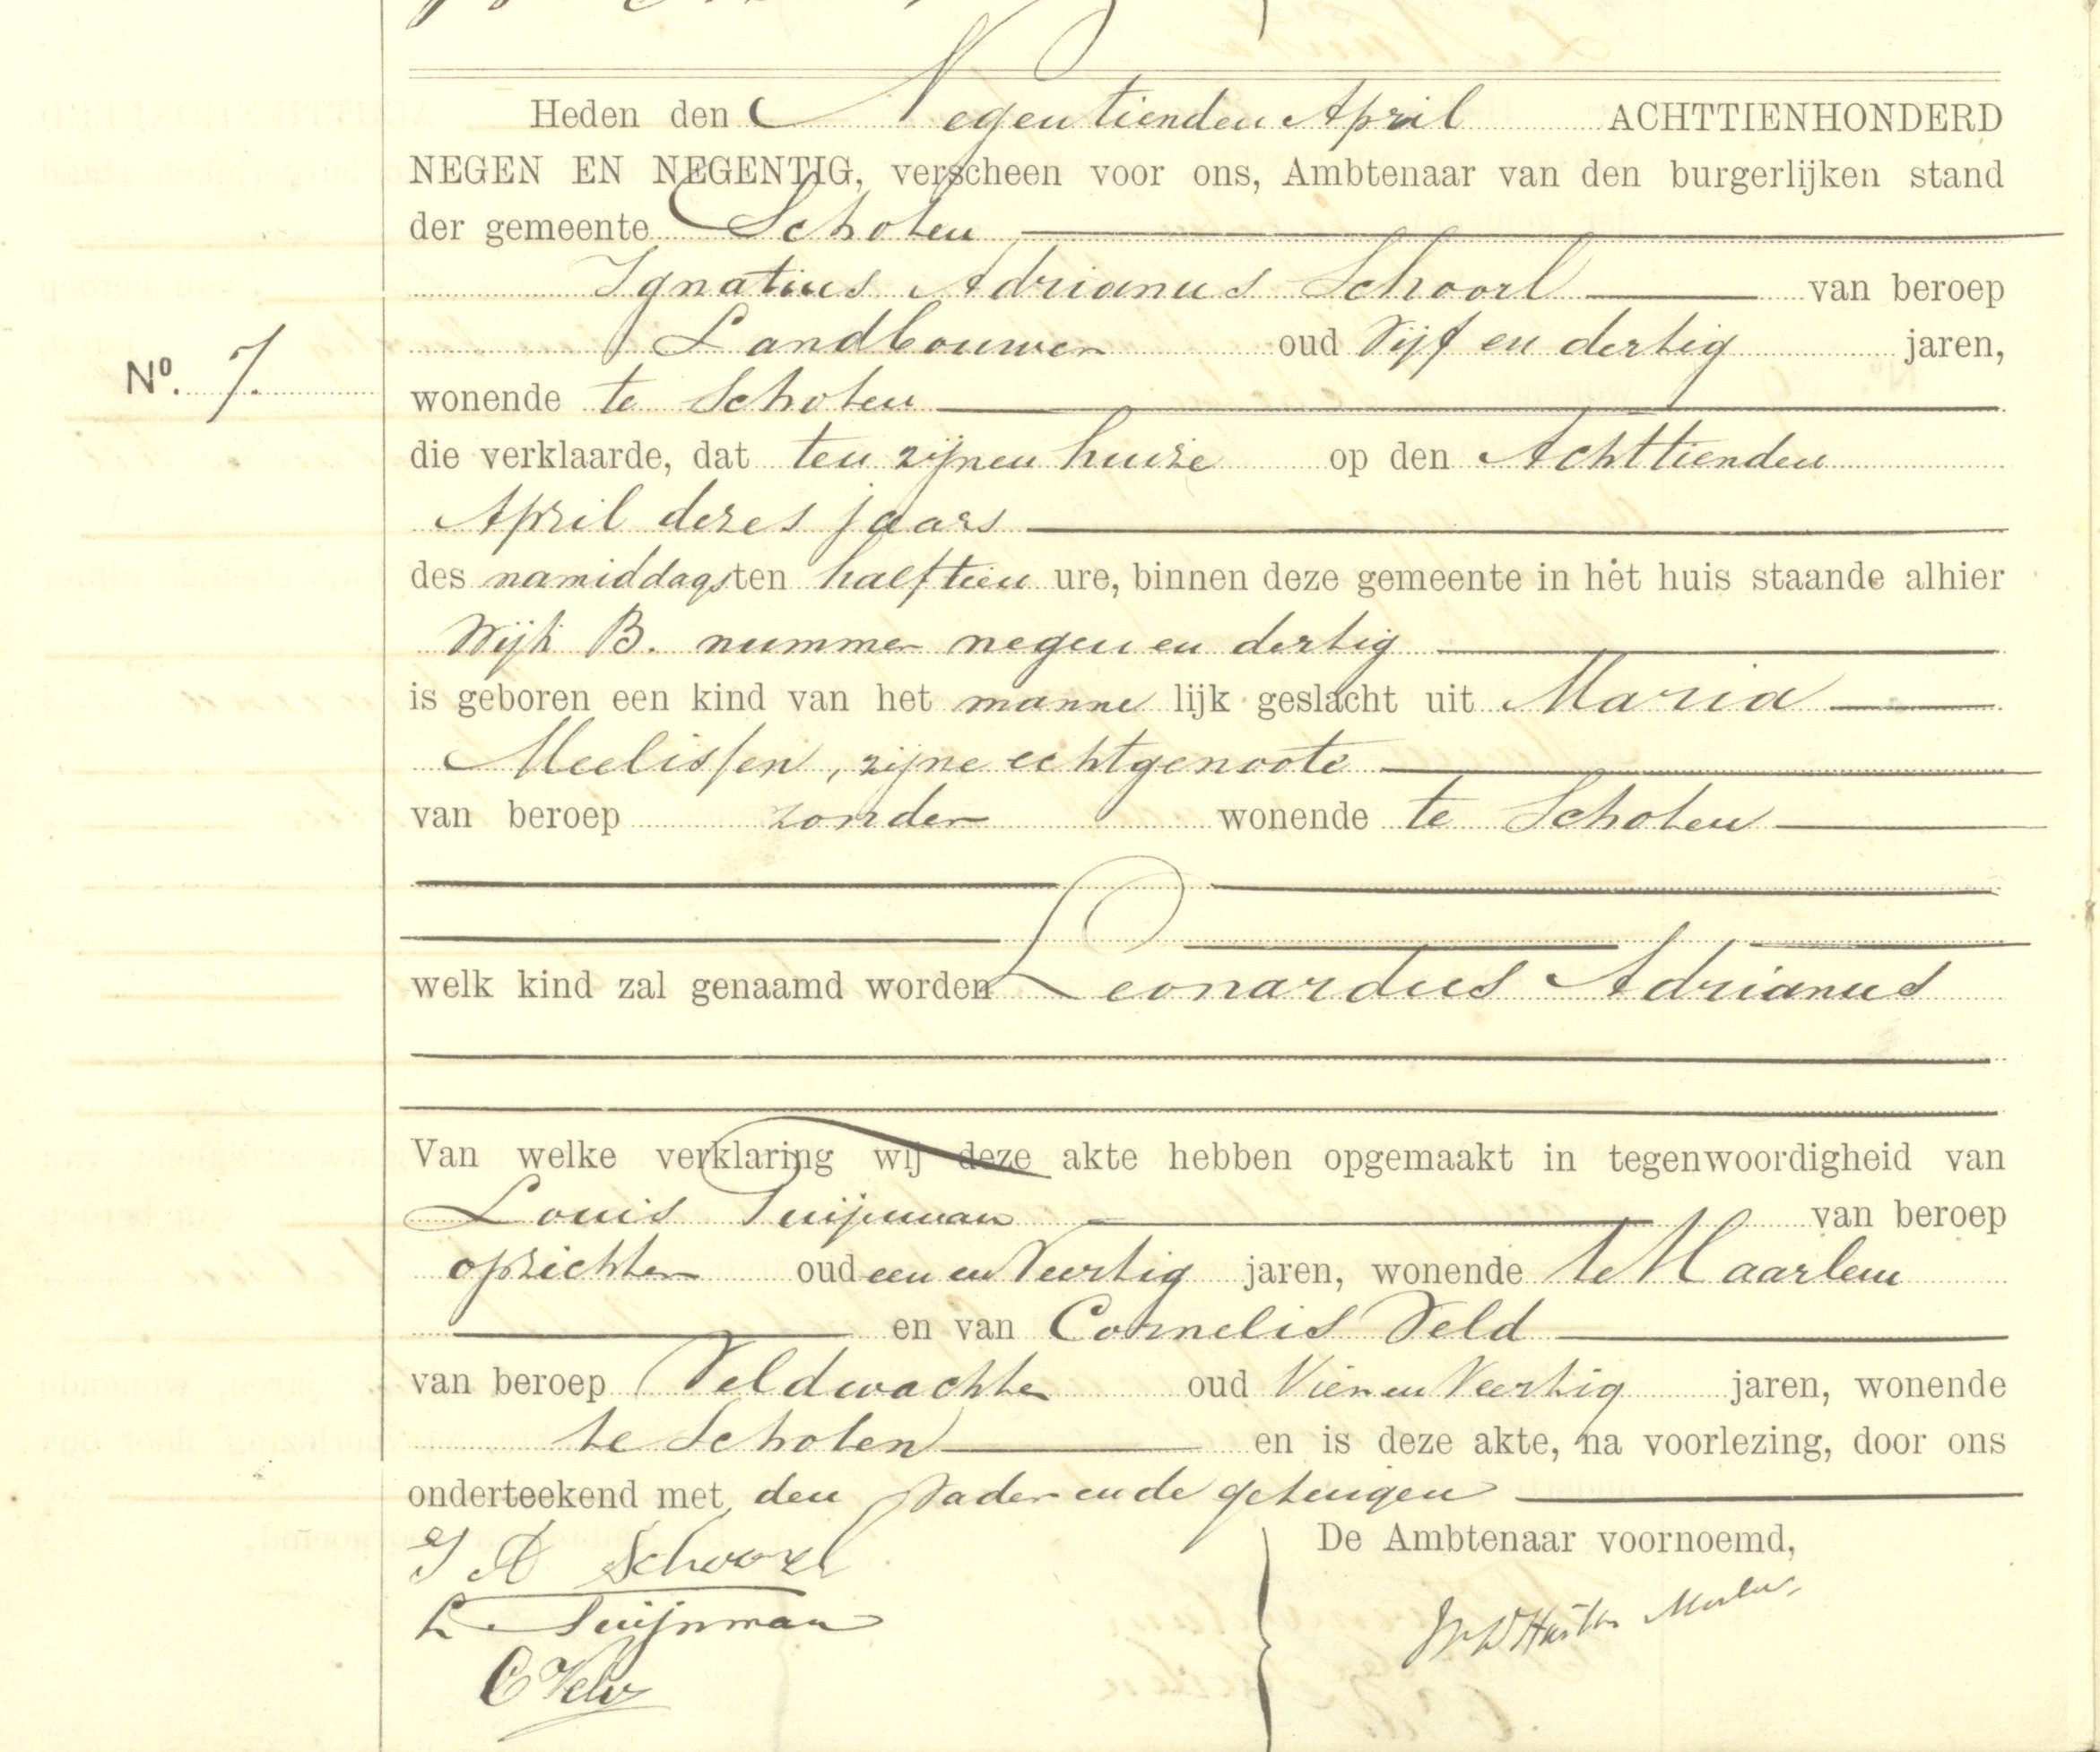 Heden den Negentienden April ACHTTIENHONDERD
NEGEN EN NEGENTIG, verscheen voor ons, Ambtenaar van den burgerlijken stand
der gemeente Schoten
Ignatius Adrianus Schoorl van beroep
Landbouwer oud Vijf en dertig jaren,
Nº. 7.
wonende te Schoten
die verklaarde, dat ten zijnen huize op den Achttienden
April dezes jaars
des namiddags ten half tien ure, binnen deze gemeente in het huis staande alhier
Wijk B. nummer negen en dertig
is geboren een kind van het manne lijk geslacht uit Maria
Meelissen, zijne echtgenoote
van beroep zonder wonende te Schoten
welk kind zal genaamd worden Leonardus Adrianus
Van welke verklaring wij deze akte hebben opgemaakt in tegenwoordigheid van
Louis Tuijnman van beroep
opzichter oud een en Veertig jaren, wonende te Haarlem
en van Cornelis Veld
van beroep Veldwachter oud Vier en Veertig jaren, wonende
te Schoten en is deze akte, na voorlezing, door ons
onderteekend met den Vader en de getuigen
De Ambtenaar voornoemd,
I A Schoorl
L. Tuijnman
C Veld